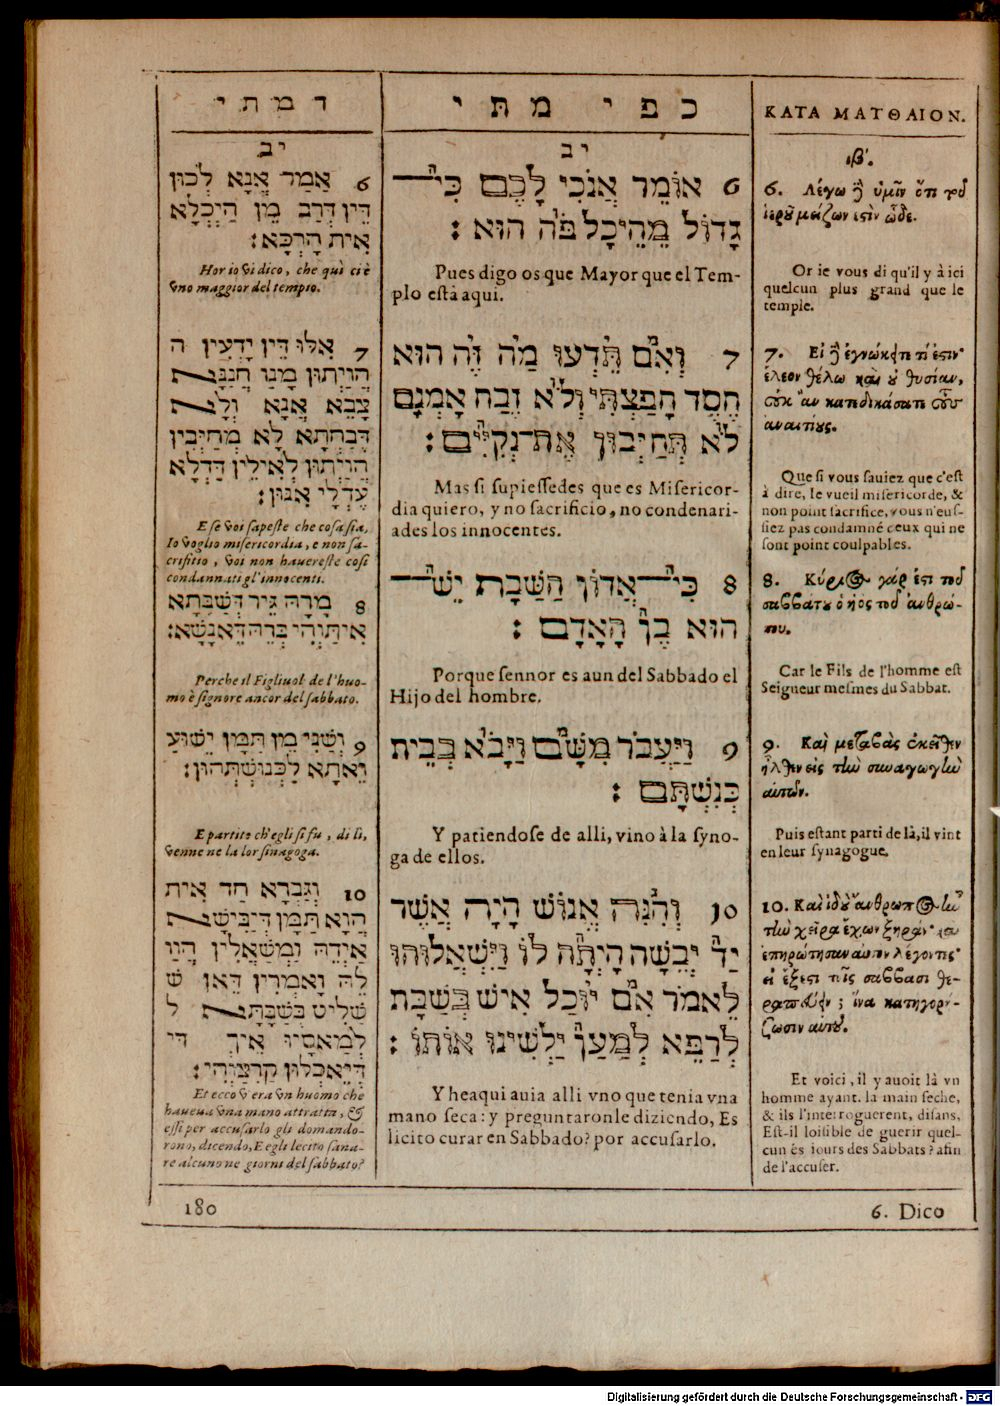 דמתי
יב
6 אֲמַר אֲנָא לְכוּן
דֵּין דְּרַב מֵן הַיְכְּלָא
אִית הָרְכָּא׃
Hor io vi dico, che quì ci è
vno maggior del tempio.
7 אִלּוּ דֵּין יָדְעִין ה
הֲוַיְתּוּן מָנַו חֲנָנָּא
צָבֵא אֲנָא וְלָא
דֶּבְחְתָא לָא מְחַיְּבִין
הֲוַיְתּוּן לְאִילֵין דַּדְלָא
עֶדְלָי אִנּוּן׃
E se voi sapeste che cosa sia,
Io voglio misericordia, e non sa-
crifitio, voi non havereste così
condannati gl'innocenti.
8 מָרָהּ גֵּיר דְּשַׁבְּתָא
אִיתַוְהִי בְּרֵהּ דֶּאֲנָשָׁא׃
Perche il Figliuol de l'huo-
mo è signore ancor del sabbato.
9 וְשַׁנִּי מֵן תַּמָּן יֵשׁוּעַ
וֵאתָא לַכְּנוּשְׁתְּהוּן׃
E partito ch'egli si fu, di lì,
venne ne la lor sinagoga.
10 וְגַבְרָא חַד אִית
הֲוָא תַּמָּן דְּיַבִּישָׁא
אִידֵהּ וַמְשַׁאֲלִין הֲוַו
לֵהּ וָאמְרִין דֵּאן שׁ
שַׁלִּיט בְּשַׁבְּתָא ל
לְמַאסָיוּ אֵיךְ דּי
דְּיֵאכְלוּן קַרְצַוְהִי׃
Et ecco v'era vn huomo che
haveua vna mano attratta, &
essi per accusarlo gli domando-
rono, dicendo, E egli lecito sana-
re alcuno ne giorni del sabbato?
כפי מתי
יב
6 אוֹמֵר אֲנֹכִי לָכֶם כִּי־
גָדוֹל מֵהֵיכָל פֹּה הוּא׃
Pues digo os que Mayor que el Tem-
plo està aqui.
7 וְאִם תֵּדְעוּ מַה זֶּה הוּא
חֶסֶד חָפַצְתִּי וְלֹא זֶבַח אָמְנָם
לֹא תְּחַיְּבוּן אֶת־נְקִיִּים׃
Mas si supiessedes que es Misericor-
dia quiero, y no sacrificio, no condenari-
ades los innocentes.
8 כִּי־אֲדוֹן הַשַּׁבָּת יֵשׁ־
הוּא בֶן הָאָדָם׃
Porque sennor es aun del Sabbado el
Hijo del hombre.
9 וַיַּעֲבֹר מִשָּׁם וַיָּבֹא בְּבֵית
כְּנִשְׁתָּם׃
Y patiendose de alli, vino à la syno-
ga de ellos.
10 וְהִנֵּה אֱנוֹשׁ הָיָה אֲשֶׁר
יַד יְבֵשָׁה הָיְתָה לוֹ וַיִּשְׁאֲלוּהוּ
לֵאמֹר אִם יוּכַל אִישׁ בְּשַׁבָּת
לְרַפֵּא לְמַעַן יַלְשִׁינוּ אוֹתוֹ׃
Y heaqui auia alli vno que tenia vna
mano seca: y preguntaronle diziendo, Es
licito curar en Sabbado? por accusarlo.
ΚΑΤΑ ΜΑΤΘΑΙΟΝ.
ιβ'.
6. Λέγω ἢ ὑμῖν ὅτι τοῦ
ἱεροῦ μείζων ἐστὶν ὧδε.
Or ie vous di qu'il y à ici
quelcun plus grand que le
temple.
7. Εἰ ἢ ἐγνώκειτε τί ἐστιν·
ἔλεον θέλω καὶ οὐ θυσίαν,
οὐκ ἂν κατεδικάσατε τοὺς
ἀναιτίους.
Que si vous sauiez que c'est
à dire, Ie vueil misericorde, &
non point sacrifice, vous n'eus-
siez pas condamné ceux qui ne
sont point coulpables.
8. Κύριος γάρ ἐστι τοῦ
σαββάτου ὁ ἡὸς τοῦ ἀνθρώ-
που.
Car le Fils de l'homme est
Seigneur mesmes du Sabbat.
9. Καὶ μεταβὰς ἐκεῖθεν
ἦλθεν εἰς τὴν συναγωγὴν
αὐτῶν.
Puis estant parti de là, il vint
en leur synagogue.
10. Καὶ ἰδοὺ ἄνθρωπος ἦν
τὴν χεῖρα ἔχων ξηράν· καὶ
ἐπηρώτησαν αὐτὸν λέγοντες·
εἰ ἔξεστι τοῖς σάββασι θε-
ραπεύειν; ἵνα κατηγορή-
ζωσιν αὐτοῦ.
Et voici, il y auoit là vn
homme ayant la main seche,
& ils l'interroguerent, disans,
Est-il loisible de guerir quel-
cun és iours des Sabbats? afin
de l'accuser.
180
6. Dico
Digitalisierung gefördert durch die Deutsche Forschungsgemeinschaft - DFG